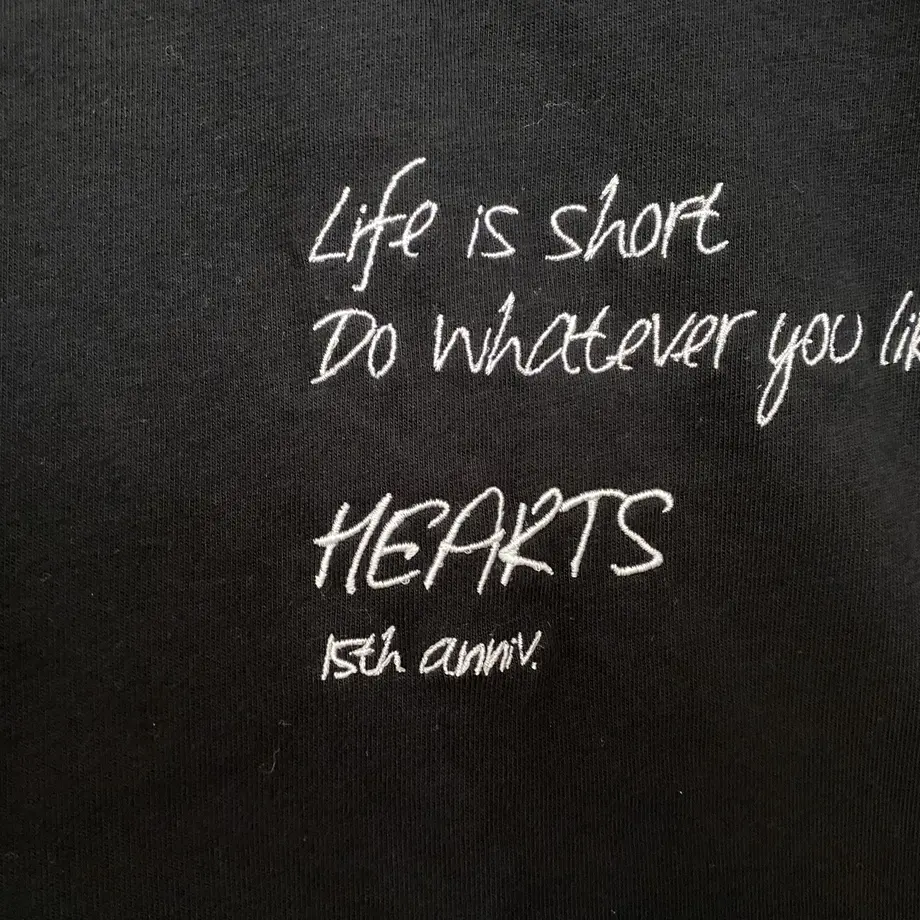 Life is short
Do whatever you lik
HEARTS
15th anniv.